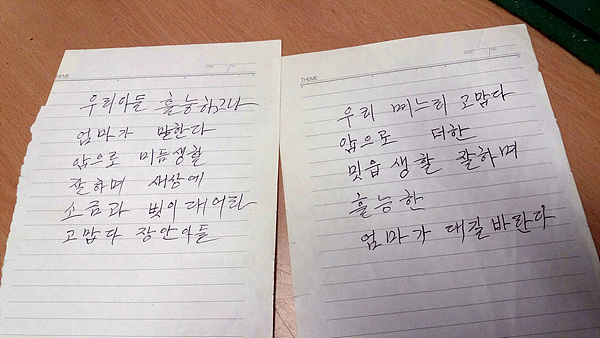 THEME
DATE
NO.
우리아들 흘능하구나
엄마가 말한다
앞으로 미듬생활
잘하며 새상에
소금과 빛이대어라
고맙다 장안아들
THEME
DATE
NO.
우리 며느리 고맙다
앞으로 더한
밋음생활 잘하며
흘능한
엄마가 대길바란다